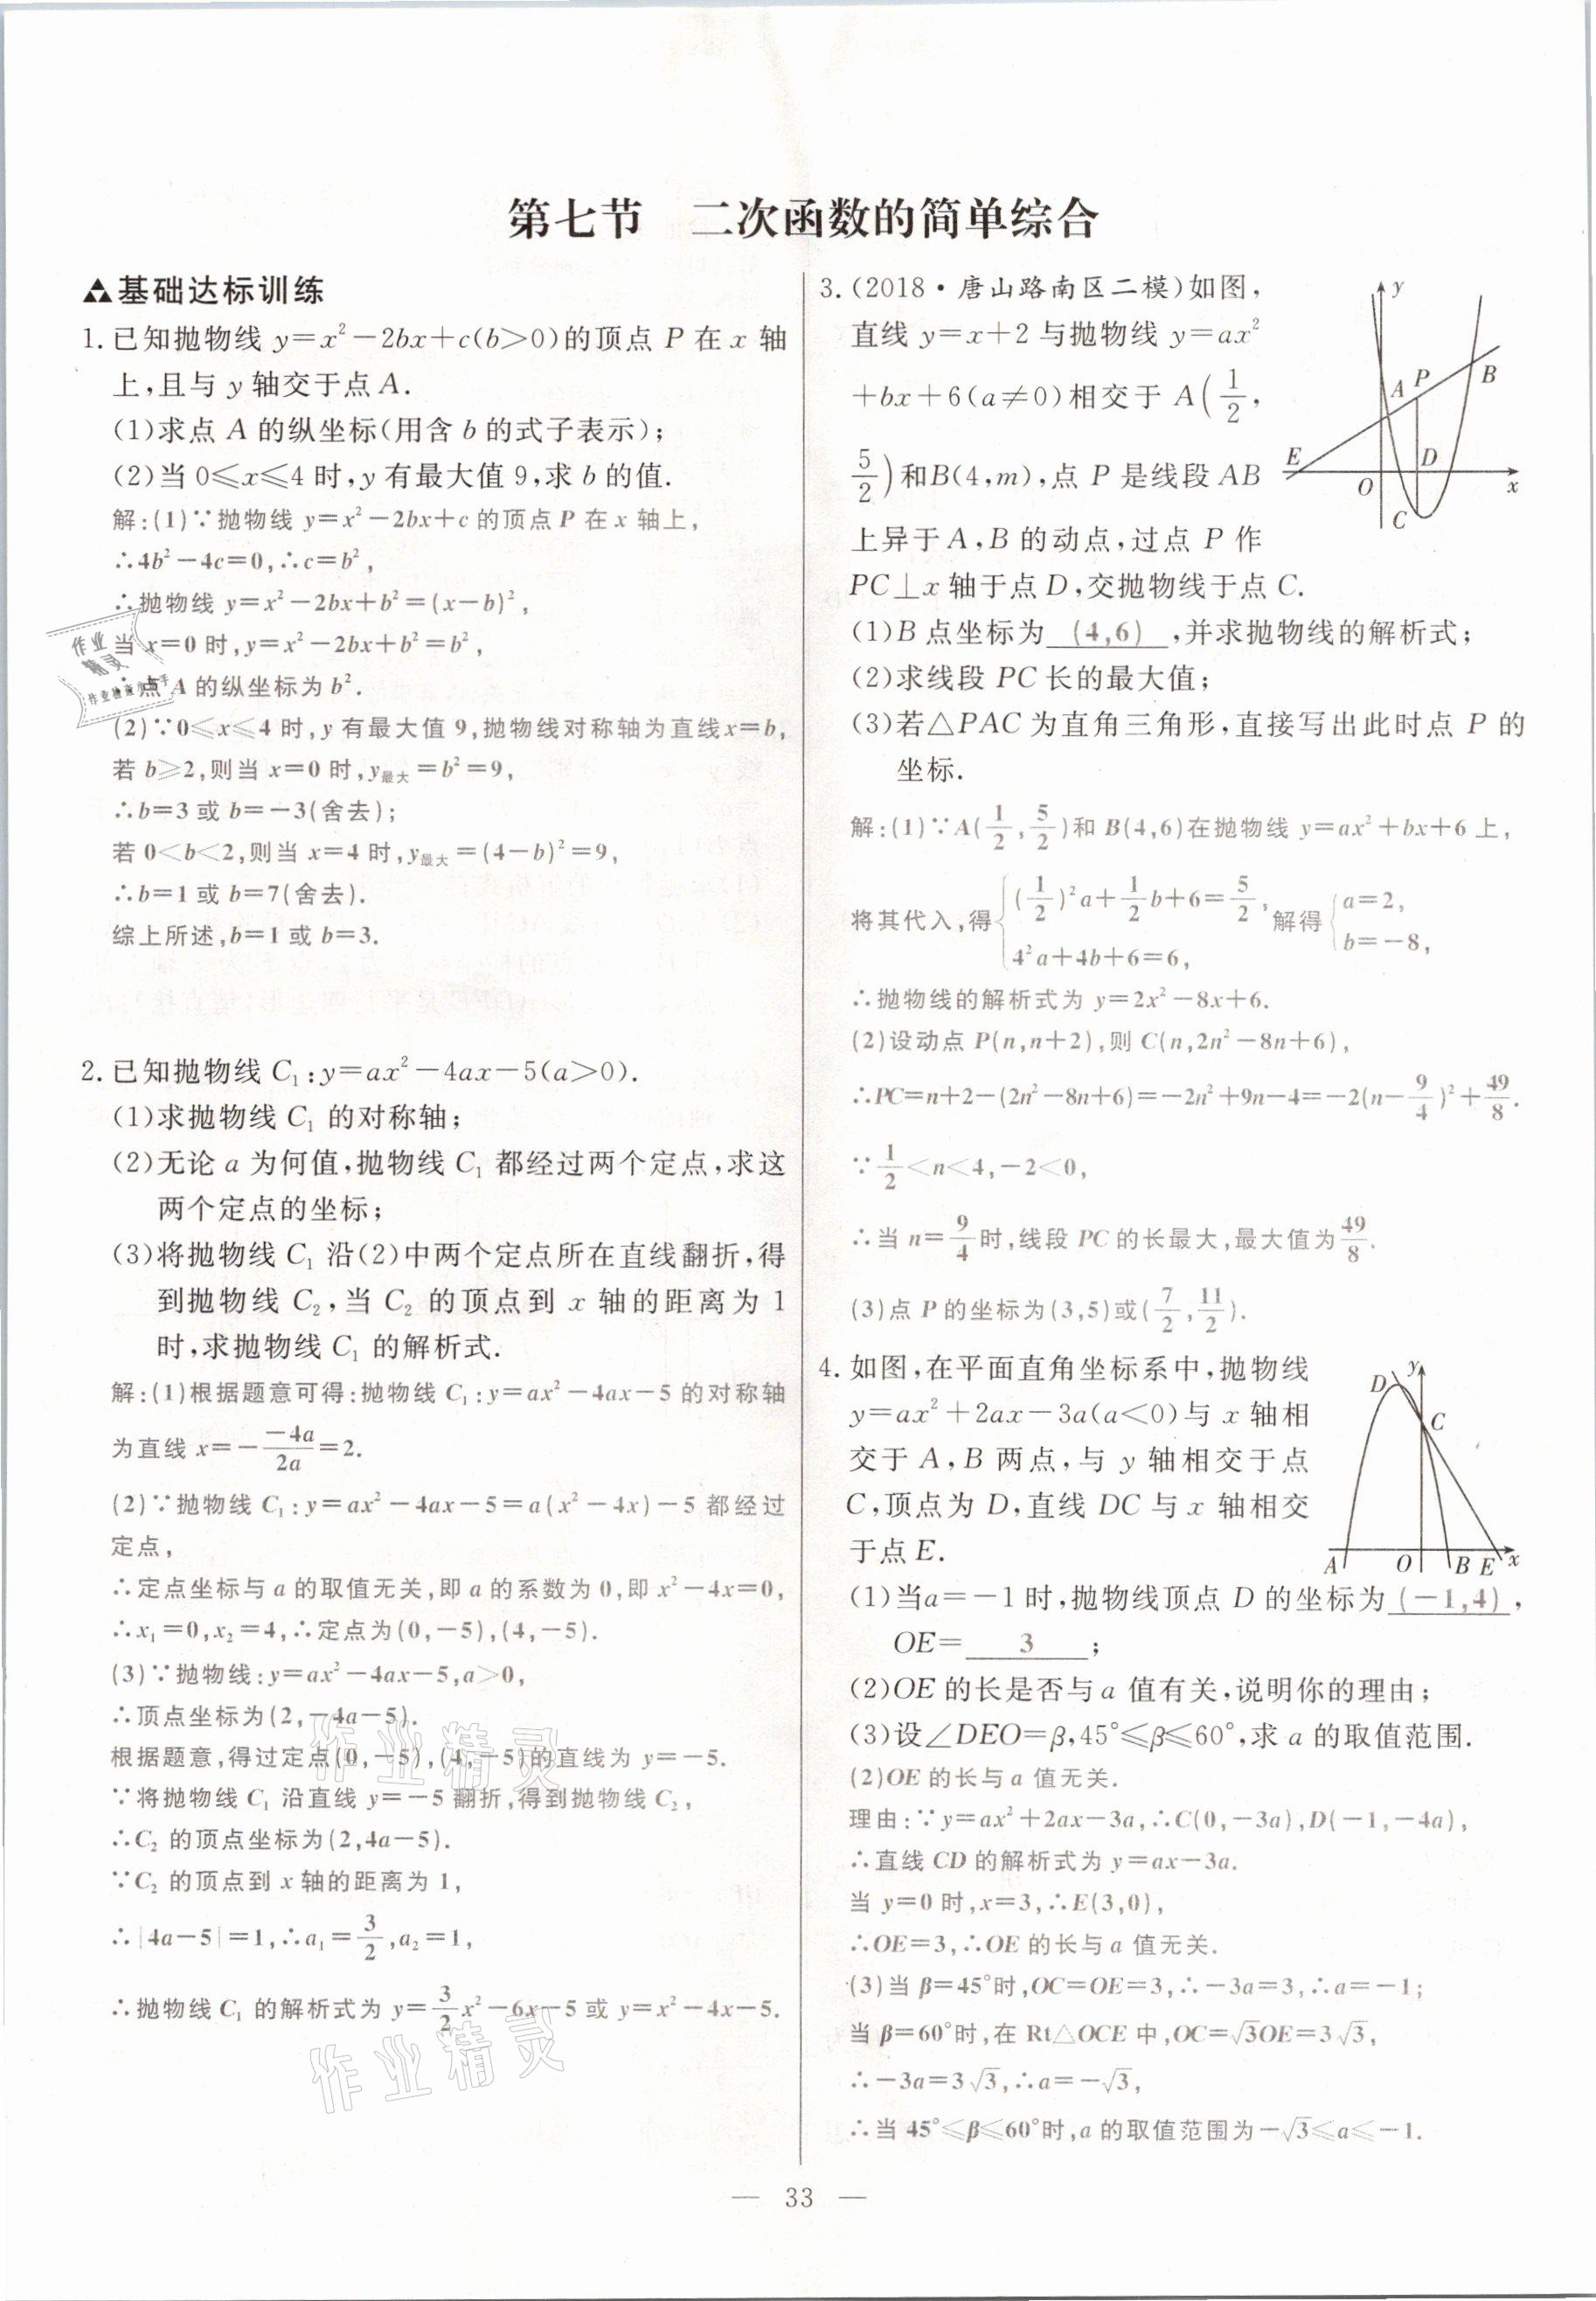 第七节　二次函数的简单综合
基础达标训练
1. 已知抛物线 y=x²-2bx+c(b>0)的顶点 P 在 x 轴
上,且与 y 轴交于点 A.
(1)求点 A 的纵坐标(用含 b 的式子表示);
(2)当 0≤x≤4 时,y 有最大值 9,求 b 的值.
解:(1)∵抛物线 y=x²-2bx+c 的顶点 P 在 x 轴上,
∴4b²-4c=0,∴c=b²,
∴抛物线 y=x²-2bx+b²=(x-b)²,
当 x=0 时,y=x²-2bx+b²=b²,
∴点 A 的纵坐标为 b².
(2)∵0≤x≤4 时,y 有最大值 9,抛物线对称轴为直线x=b,
若 b≥2,则当 x=0 时,y最大=b²=9,
∴b=3 或 b=-3(舍去);
若 0<b<2,则当 x=4 时,y最大=(4-b)²=9,
∴b=1 或 b=7(舍去).
综上所述,b=1 或 b=3.
2. 已知抛物线 C₁:y=ax²-4ax-5(a>0).
(1)求抛物线 C₁ 的对称轴;
(2)无论 a 为何值,抛物线 C₁ 都经过两个定点,求这
两个定点的坐标;
(3)将抛物线 C₁ 沿(2)中两个定点所在直线翻折,得
到抛物线 C₂,当 C₂ 的顶点到 x 轴的距离为 1
时,求抛物线 C₁ 的解析式.
解:(1)根据题意可得:抛物线 C₁:y=ax²-4ax-5 的对称轴
为直线 x=-\frac{-4a}{2a}=2.
(2)∵抛物线 C₁:y=ax²-4ax-5=a(x²-4x)-5 都经过
定点,
∴定点坐标与 a 的取值无关,即 a 的系数为 0,即 x²-4x=0,
∴x₁=0,x₂=4,∴定点为(0,-5),(4,-5).
(3)∵抛物线:y=ax²-4ax-5,a>0,
∴顶点坐标为(2,-4a-5).
根据题意,得过定点(0,-5),(4,-5)的直线为 y=-5.
∵将抛物线 C₁ 沿直线 y=-5 翻折,得到抛物线 C₂,
∴C₂ 的顶点坐标为(2,4a-5).
∵C₂ 的顶点到 x 轴的距离为 1,
∴|4a-5|=1,∴a₁=\frac{3}{2},a₂=1,
∴抛物线 C₁ 的解析式为 y=\frac{3}{2}x²-6x-5 或 y=x²-4x-5.
3. (2018·唐山路南区二模)如图,
直线 y=x+2 与抛物线 y=ax²
+bx+6(a≠0)相交于 A(\frac{1}{2},
\frac{5}{2})和B(4,m),点 P 是线段 AB
上异于 A,B 的动点,过点 P 作
PC⊥x 轴于点 D,交抛物线于点 C.
y
A P B
E D
O x
C
(1)B 点坐标为 (4,6) ,并求抛物线的解析式;
(2)求线段 PC 长的最大值;
(3)若△PAC 为直角三角形,直接写出此时点 P 的
坐标.
解:(1)∵A(\frac{1}{2},\frac{5}{2})和 B(4,6)在抛物线 y=ax²+bx+6 上,
将其代入,得{(\frac{1}{2})²a+\frac{1}{2}b+6=\frac{5}{2}, 4²a+4b+6=6, 解得{a=2, b=-8,
∴抛物线的解析式为 y=2x²-8x+6.
(2)设动点 P(n,n+2),则 C(n,2n²-8n+6),
∴PC=n+2-(2n²-8n+6)=-2n²+9n-4=-2(n-\frac{9}{4})²+\frac{49}{8}.
∵\frac{1}{2}<n<4,-2<0,
∴当 n=\frac{9}{4}时,线段 PC 的长最大,最大值为\frac{49}{8}.
(3)点 P 的坐标为(3,5)或(\frac{7}{2},\frac{11}{2}).
4. 如图,在平面直角坐标系中,抛物线
y=ax²+2ax-3a(a<0)与 x 轴相
交于 A,B 两点,与 y 轴相交于点
C,顶点为 D,直线 DC 与 x 轴相交
于点 E.
y
D
C
A O B E x
(1)当a=-1 时,抛物线顶点 D 的坐标为 (-1,4) ,
OE= 3 ;
(2)OE 的长是否与 a 值有关,说明你的理由;
(3)设∠DEO=β,45°≤β≤60°,求 a 的取值范围.
(2)OE 的长与 a 值无关.
理由:∵y=ax²+2ax-3a,∴C(0,-3a),D(-1,-4a),
∴直线 CD 的解析式为 y=ax-3a.
当 y=0 时,x=3,∴E(3,0),
∴OE=3,∴OE 的长与 a 值无关.
(3)当 β=45°时,OC=OE=3,∴-3a=3,∴a=-1;
当 β=60°时,在 Rt△OCE 中,OC=√3OE=3√3,
∴-3a=3√3,∴a=-√3,
∴当 45°≤β≤60°时,a 的取值范围为-√3≤a≤-1.
— 33 —
作业
精灵
作业精灵
作业精灵